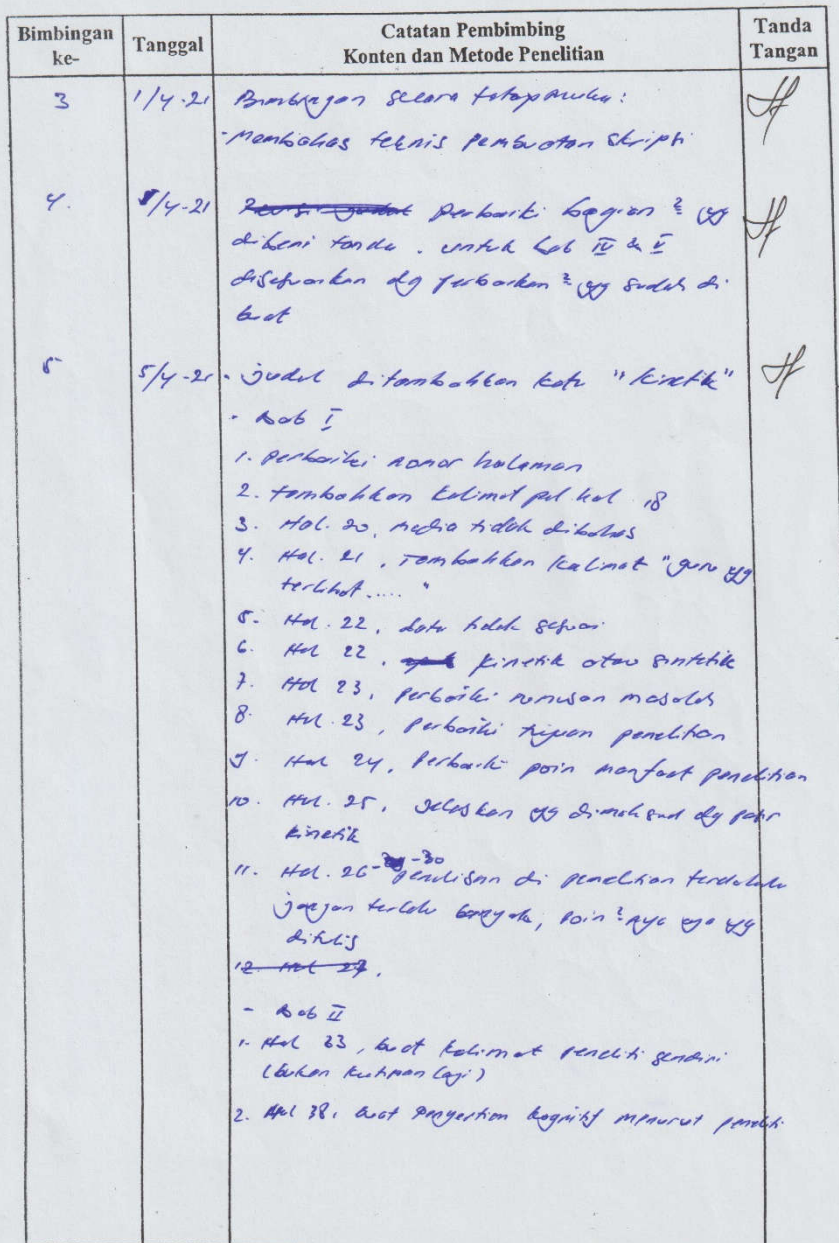 Bimbingan ke-
Tanggal
Catatan Pembimbing
Konten dan Metode Penelitian
Tanda Tangan
3 1/4-21 Bimbingan secara tatap muka:
- Membahas teknis pembuatan skripsi
4. 5/4-21 perbaiki bagian ² yg
diberi tanda. untuk bab IV & V
disesuaikan dg perbaikan ² yg sudah di
buat
5 5/4-21 - judul ditambahkan kata "kinetik"
- Bab I
1. perbaiki nomor halaman
2. tambahkan kalimat pd hal 18
3. Hal. 20, media tidak dibahas
4. Hal. 21, Tambahkan kalimat "guru yg
terlihat....."
5. Hal. 22, data tidak sesuai
6. Hal 22, kinetik atau sintetik
7. Hal 23, perbaiki rumusan masalah
8. Hal. 23, perbaiki tujuan penelitian
9. Hal 24, Perbaiki poin manfaat penelitian
10. Hal. 25, jelaskan yg dimaksud dg pasir
kinetik
11. Hal. 26-30 penulisan di penelitian terdahulu
jangan terlalu banyak, poin ² nya aja yg
ditulis
12. Hal 27.
- Bab II
1. Hal 33, buat kalimat peneliti sendiri
(bukan kutipan lagi)
2. Hal 38, buat pengertian kognitif menurut peneliti